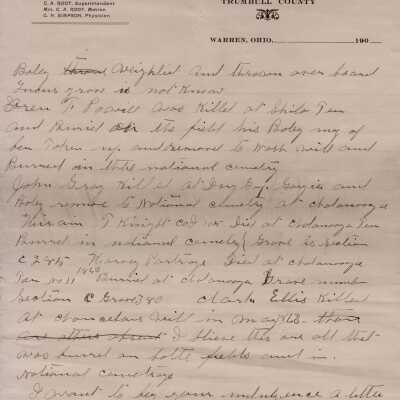 C. A. ROOT, Superintendent
Mrs. C. A. ROOT, Matron
C. H. SIMPSON, Physician
TRUMBULL COUNTY
WARREN, OHIO, 190
Boley thrown weighted and thrown over board
grove is not Know
Oren F was Killed at Shilo Ten
and Buried on the field his Boley may of
ben Taken up and removed to Nash vill and
Burred in thle national cemetry
John Gray Killed at and
Boley remove to National cemetry at chatanooga
Hiriam T Knight co D Died at chatanooga Ten
Burrel in national cemetry Grove 20 Section
C 285 Harvey Partrage Died at chatanooga
Ten no 11 1863 Burriel at chatanooga Grave number
Section C Grove 780 Clark Ellis Killed
At chancelars vill in May 63
are others I bleave this are all that
was burrel on batle fields and in
National cemetrys
I want to beg your indulgence a little